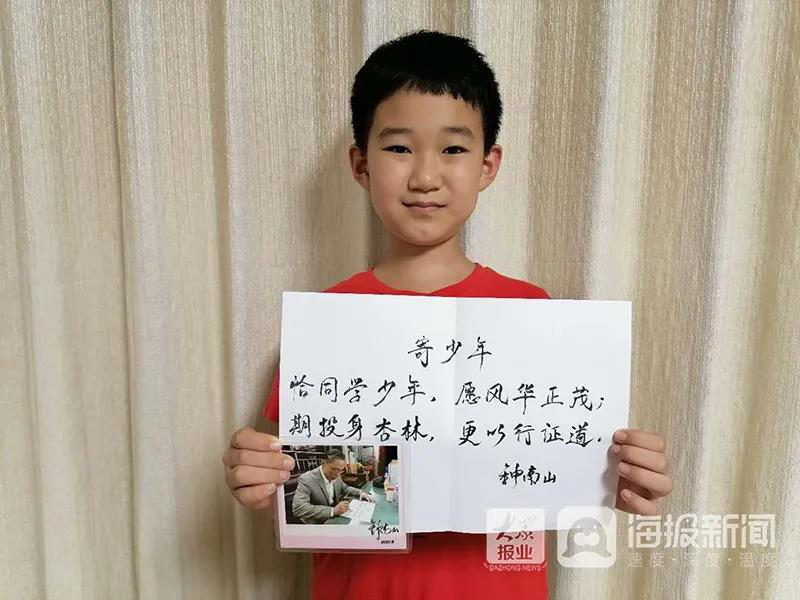 寄少年
恰同学少年，愿风华正茂；
期投身杏林，更以行证道。
钟南山
钟南山
2020.8
大众
报业
DAZHONG NEWS
海报新闻
速度·深度·温度